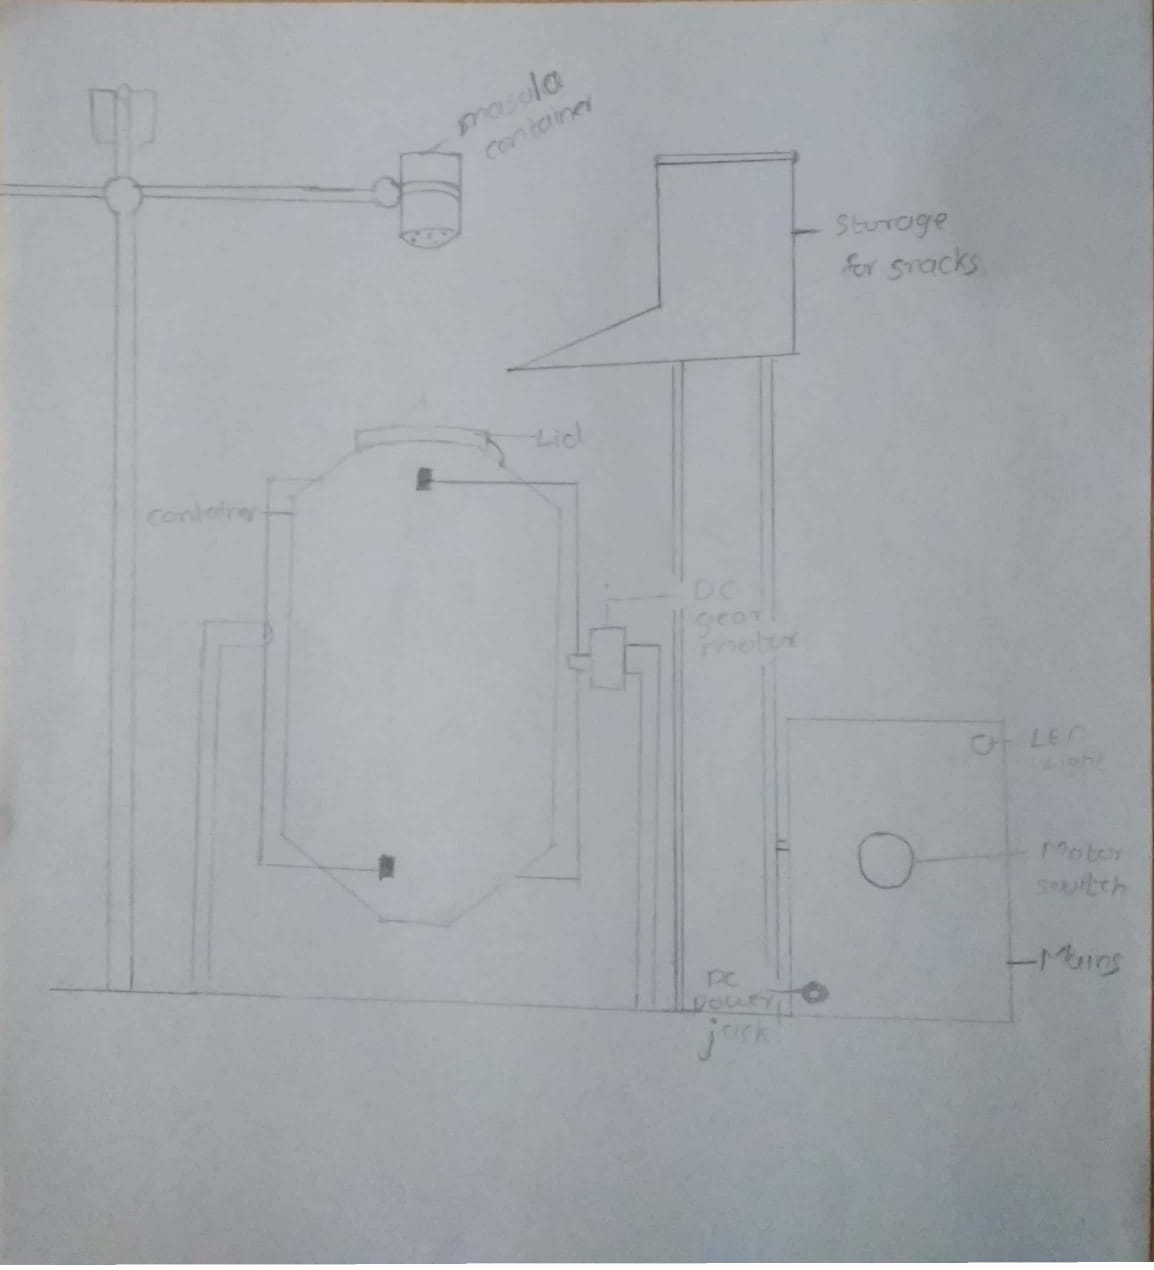 masala
container
Storage
for snacks
Lid
container
DC
gear
motor
LED
Light
Motor
switch
Mains
DC
power
jack